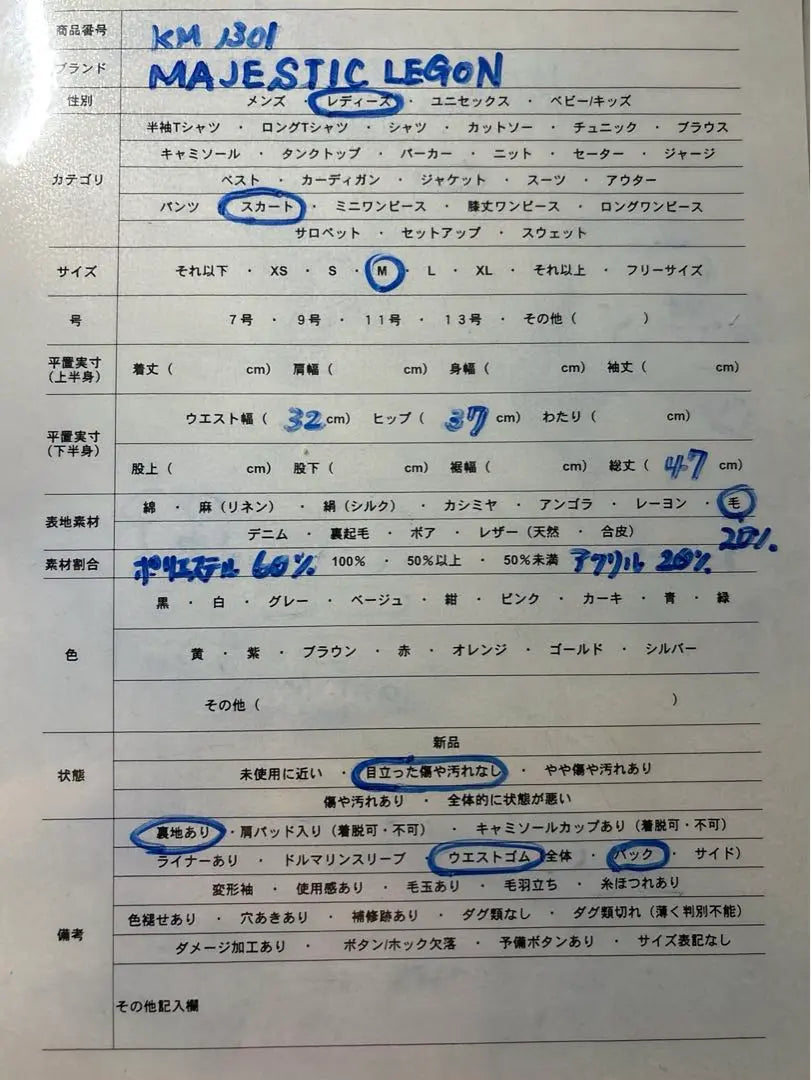 商品番号 KM 1301
ブランド MAJESTIC LEGON
性別 メンズ ・ レディース ・ ユニセックス ・ ベビー/キッズ
半袖Tシャツ ・ ロングTシャツ ・ シャツ ・ カットソー ・ チュニック ・ ブラウス
キャミソール ・ タンクトップ ・ パーカー ・ ニット ・ セーター ・ ジャージ
カテゴリ ベスト ・ カーディガン ・ ジャケット ・ スーツ ・ アウター
パンツ ・ スカート ・ ミニワンピース ・ 膝丈ワンピース ・ ロングワンピース
サロペット ・ セットアップ ・ スウェット
サイズ それ以下 ・ XS ・ S ・ M ・ L ・ XL ・ それ以上 ・ フリーサイズ
号 7号 ・ 9号 ・ 11号 ・ 13号 ・ その他 ( )
平置実寸 (上半身) 着丈 ( cm) 肩幅 ( cm) 身幅 ( cm) 袖丈 ( cm)
平置実寸 (下半身) ウエスト幅 ( 32 cm) ヒップ ( 37 cm) わたり ( cm)
股上 ( cm) 股下 ( cm) 裾幅 ( cm) 総丈 ( 47 cm)
表地素材 綿 ・ 麻 (リネン) ・ 絹 (シルク) ・ カシミヤ ・ アンゴラ ・ レーヨン ・ 毛
デニム ・ 裏起毛 ・ ボア ・ レザー (天然 ・ 合皮) 20%
素材割合 ポリエステル 60% 100% ・ 50%以上 ・ 50%未満 アクリル 20%
黒 ・ 白 ・ グレー ・ ベージュ ・ 紺 ・ ピンク ・ カーキ ・ 青 ・ 緑
色 黄 ・ 紫 ・ ブラウン ・ 赤 ・ オレンジ ・ ゴールド ・ シルバー
その他 ( )
新品
状態 未使用に近い ・ 目立った傷や汚れなし ・ やや傷や汚れあり
傷や汚れあり ・ 全体的に状態が悪い
裏地あり ・ 肩パッド入り (着脱可・不可) ・ キャミソールカップあり (着脱可・不可)
ライナーあり ・ ドルマリンスリーブ ・ ウエストゴム (全体 ・ バック ・ サイド)
変形袖 ・ 使用感あり ・ 毛玉あり ・ 毛羽立ち ・ 糸ほつれあり
色褪せあり ・ 穴あきあり ・ 補修跡あり ・ タグ類なし ・ タグ類切れ (薄く判別不能)
備考 ダメージ加工あり ・ ボタン/ホック欠落 ・ 予備ボタンあり ・ サイズ表記なし
その他記入欄